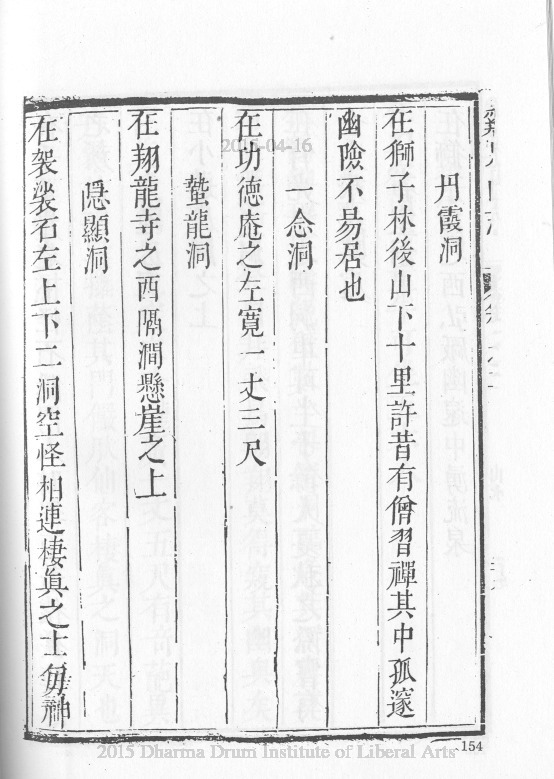 丹霞洞
在獅子林後山下十里許昔有僧習禪其中孤邃
幽險不昜居也
一念洞
在功徳庵之左寛一丈三尺
蟄龍洞
在翔龍寺之西隔澗懸崖之上
隱顯洞
在袈裟石左上下二洞空怪相連棲眞之士毎神
2015-04-16
154
2015 Dharma Drum Institute of Liberal Arts